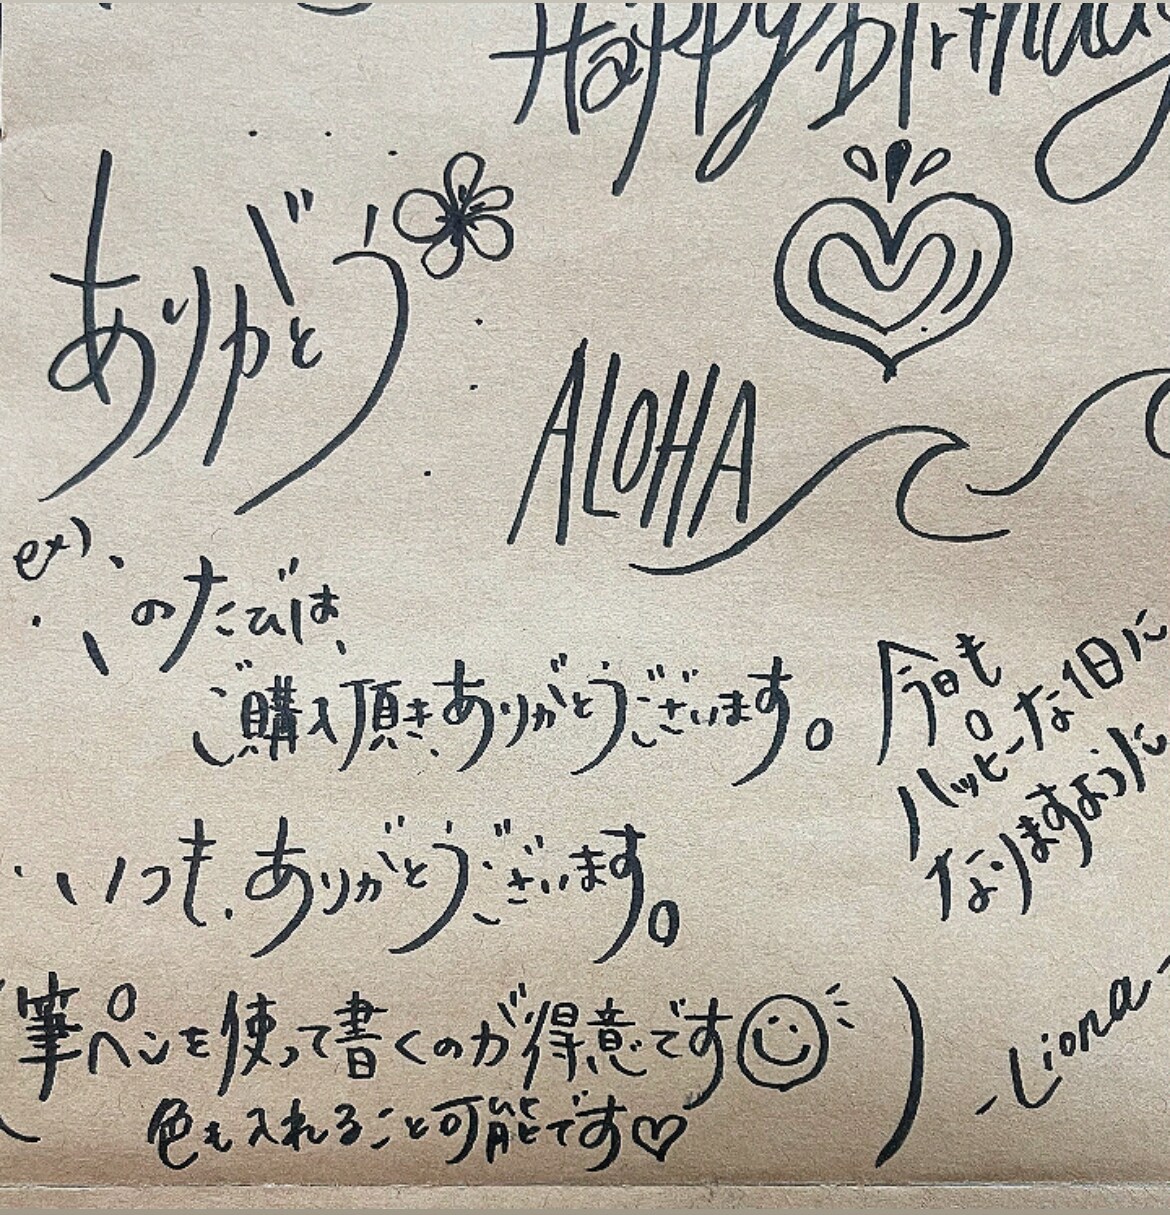 Happy Birthday
ありがとう
ALOHA
ex)
・このたびは、
ご購入頂きありがとうございます。
・いつも、ありがとうございます。
今日も
ハッピーな1日に
なりますように
-Liona-
(筆ペンを使って書くのが得意です
色も入れること可能です♡)